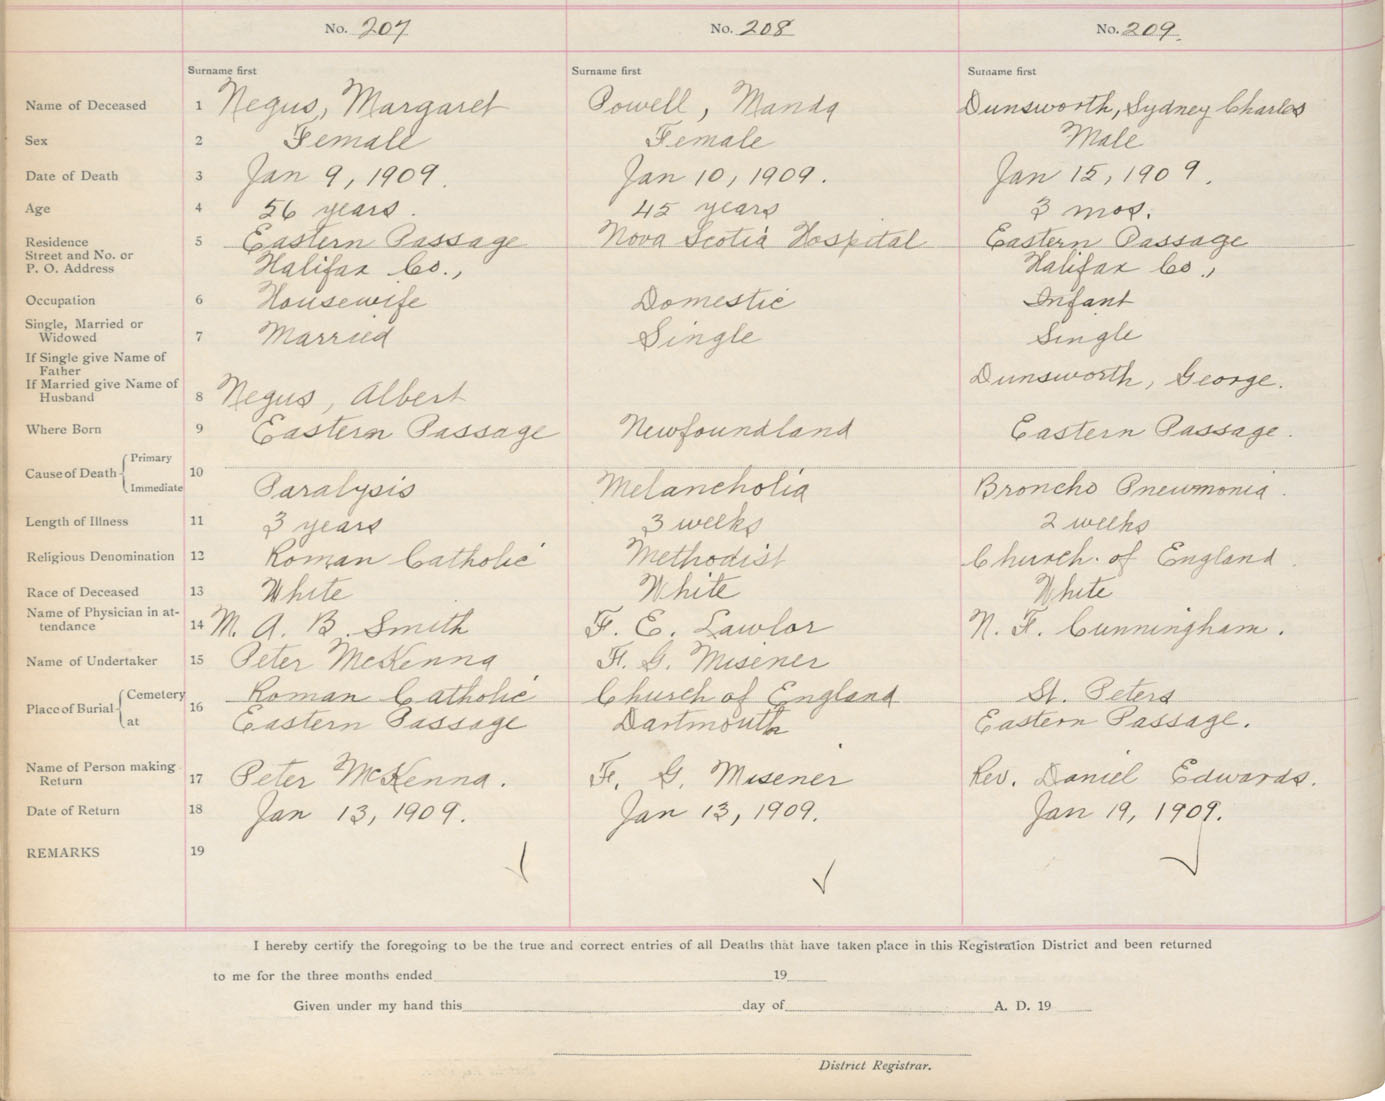 No. 207 No. 208 No. 209.
Surname first Surname first Surname first
Name of Deceased 1 Negus, Margaret Powell, Manda Dunsworth, Sydney Charles
Sex 2 Female Female Male
Date of Death 3 Jan 9, 1909. Jan 10, 1909. Jan 15, 1909.
Age 4 56 years. 45 years 3 mos.
Residence 5 Eastern Passage Nova Scotia Hospital Eastern Passage
Street and No. or
P. O. Address Halifax Co., Halifax Co.,
Occupation 6 Housewife Domestic Infant
Single, Married or
Widowed 7 Married Single Single
If Single give Name of
Father
If Married give Name of Dunsworth, George.
Husband 8 Negus, Albert
Where Born 9 Eastern Passage Newfoundland Eastern Passage.
Cause of Death Primary 10
Immediate Paralysis Melancholia Broncho Pneumonia.
Length of Illness 11 3 years 3 weeks 2 weeks
Religious Denomination 12 Roman Catholic Methodist Church of England.
Race of Deceased 13 White White White
Name of Physician in at-
tendance 14 M. A. B. Smith F. E. Lawlor N. F. Cunningham.
Name of Undertaker 15 Peter McKenna F. G. Misener
Place of Burial Cemetery 16 Roman Catholic Church of England St. Peters
at Eastern Passage Dartmouth Eastern Passage.
Name of Person making
Return 17 Peter McKenna. F. G. Misener Rev. Daniel Edwards.
Date of Return 18 Jan 13, 1909. Jan 13, 1909. Jan 19, 1909.
REMARKS 19 ✓ ✓ ✓
I hereby certify the foregoing to be the true and correct entries of all Deaths that have taken place in this Registration District and been returned
to me for the three months ended 19
Given under my hand this day of A. D. 19
District Registrar.